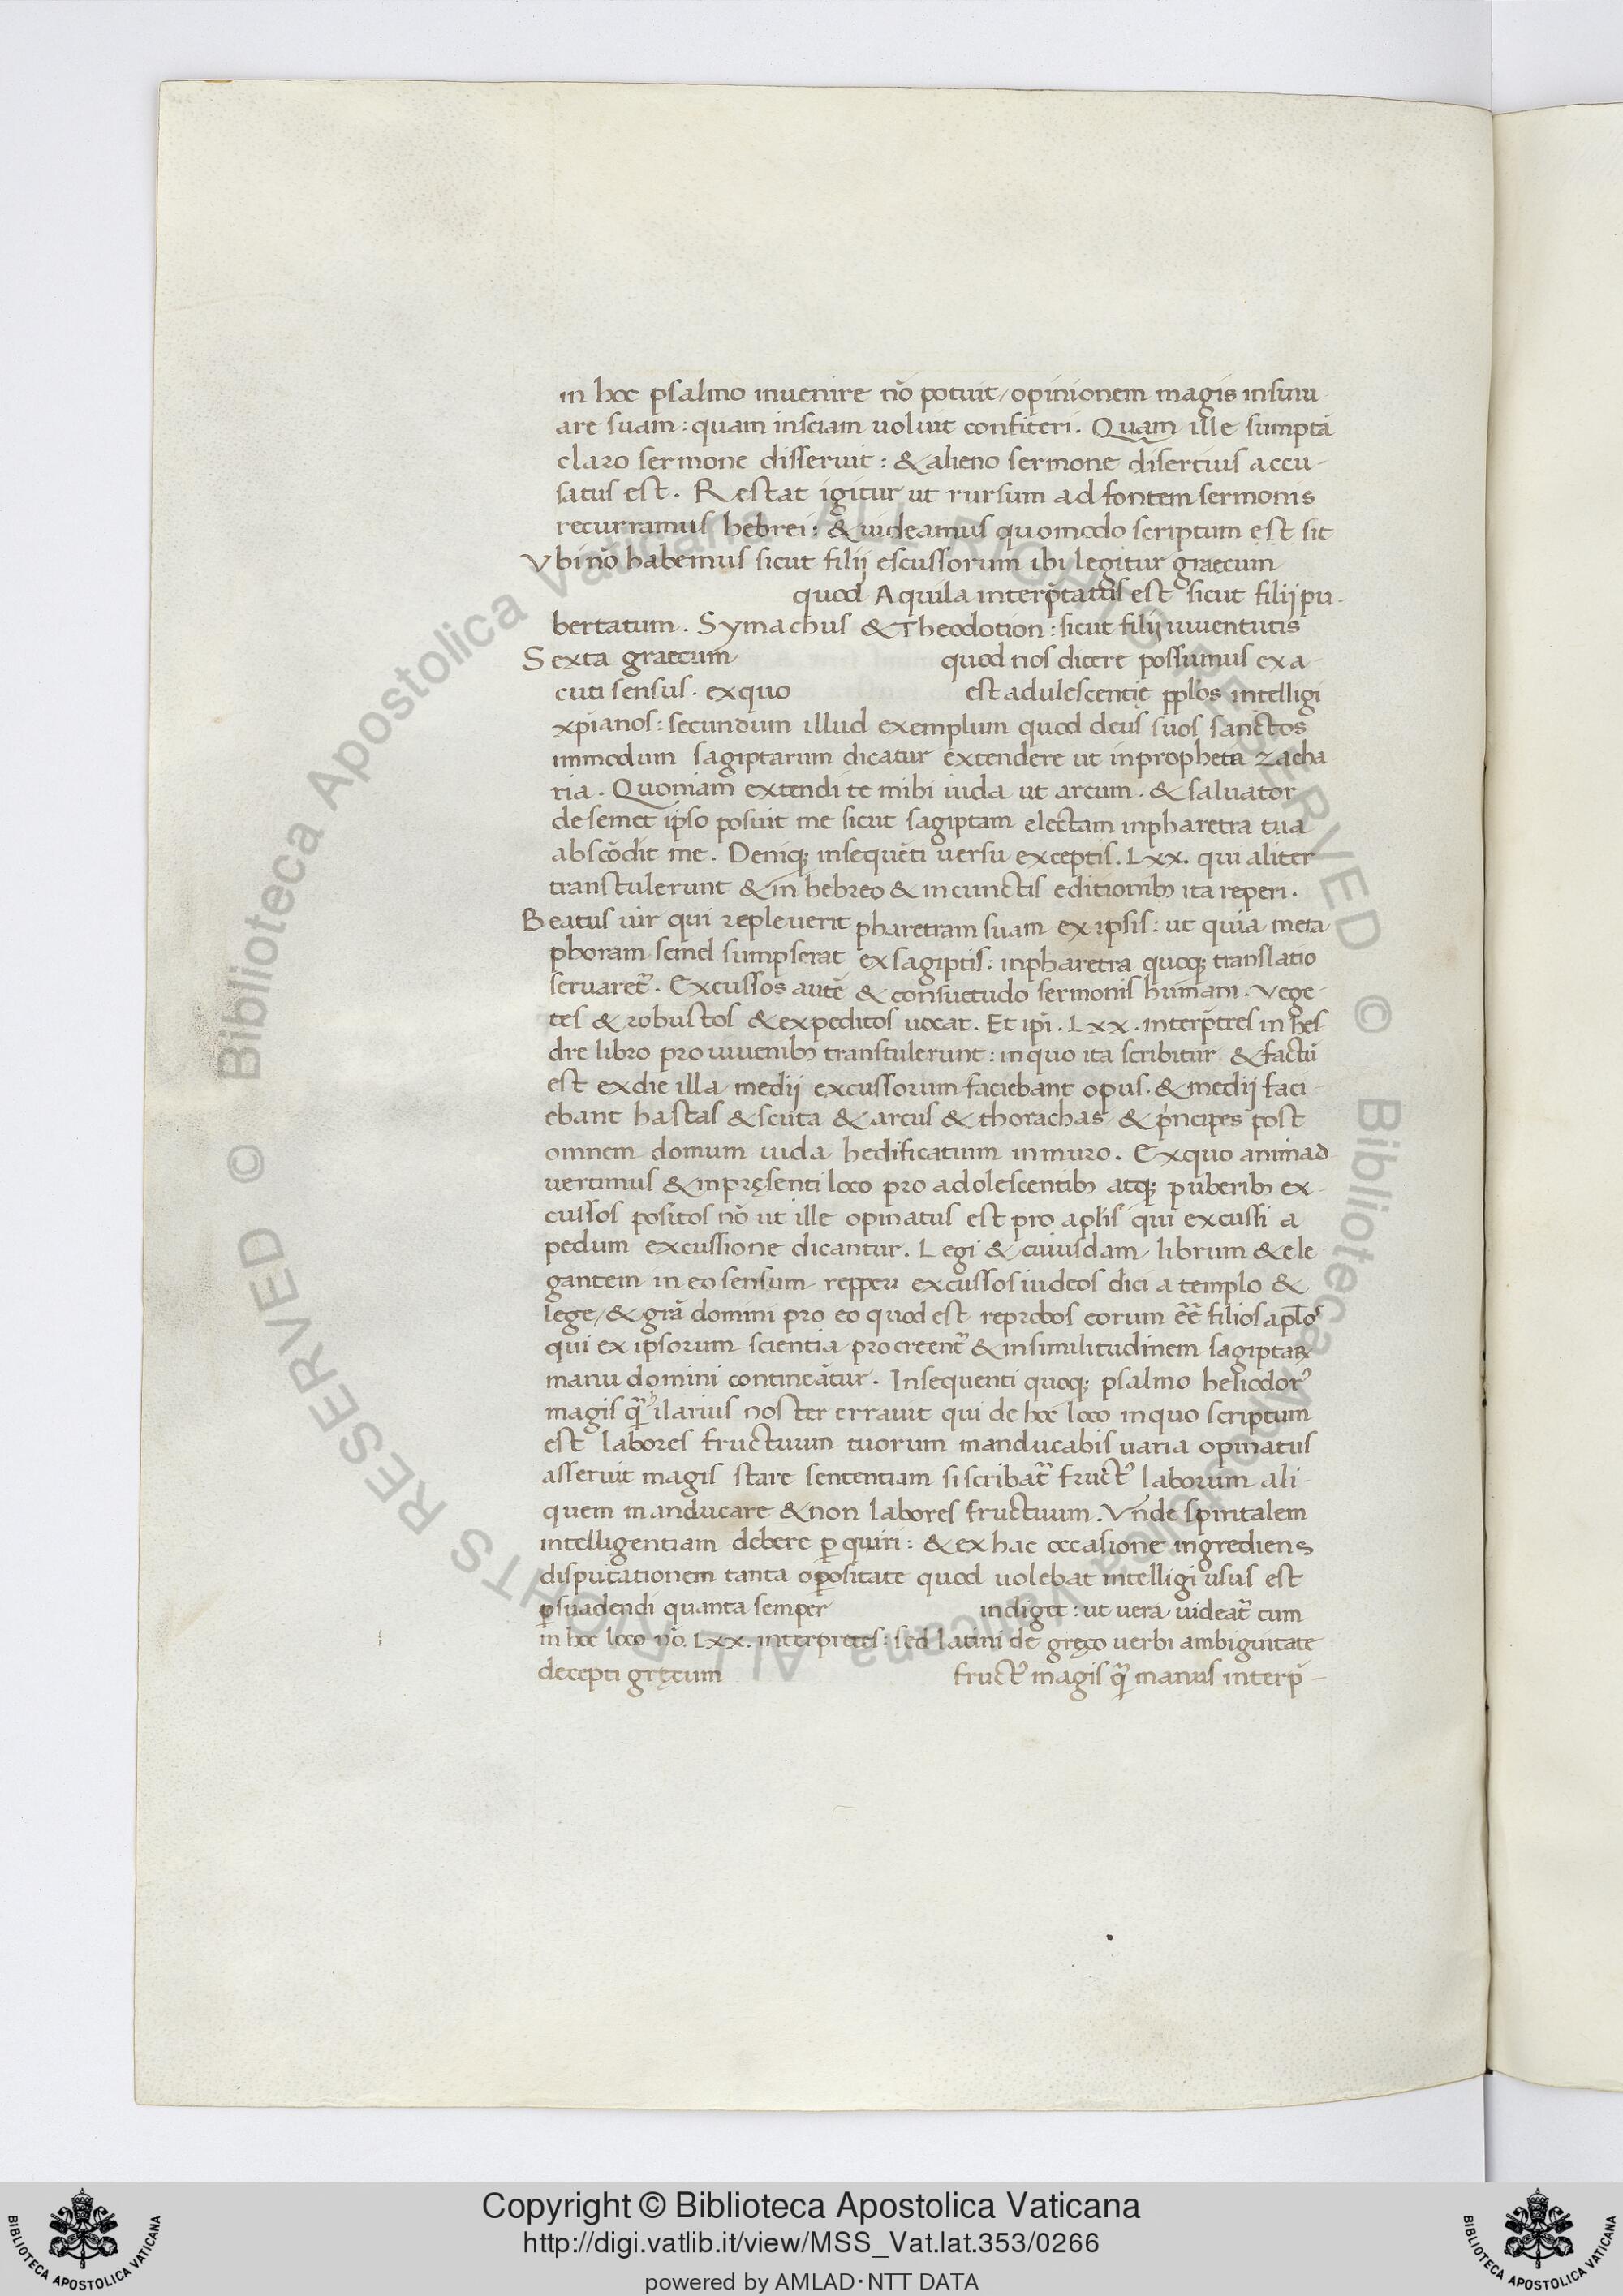 in hoc psalmo inuenire nō potuit / opinionem magis insinu
are suam : quam insciam uoluit confiteri . Quam ille sumptā
claro sermone disseruit : & alieno sermone disertius accu-
satus est . Restat igitur ut rursum ad fontem sermonis
recurramus hebrei : & uideamus quomodo scriptum est sit
Vbi nō habemus sicut filij escussorum ibi legitur graecum
quod Aquila interp̄tatus est sicut filij pu-
bertatum . Symachus & Theodotion : sicut filij iuuentutis
Sexta graecum quod nos dicere possumus exa-
cuti sensus . exquo est adulescentię pplos intelligi
xpianos : secundum illud exemplum quod deus suos sanctos
inmodum sagiptarum dicatur extendere ut inpropheta zacha
ria . Quoniam extendi te mihi iuda ut arcum . & saluator
de semet ipso posuit me sicut sagiptam electam inpharetra tua
abscōdit me . Deniq; insequēti uersu exceptis . Lxx . qui aliter
transtulerunt & in hebreo & incunctis editionibꝫ ita reperi .
Beatus uir qui repleuerit pharetram suam ex ipsis : ut quia meta
phoram semel sumpserat exsagiptis : inpharetra quoq; translatio
seruaret᷑ . Excussos autē & consuetudo sermonis humani . Vege-
tes & robustos & expeditos uocat . Et ipi . Lxx . interp̄tes in hes
dre libro pro iuuenibꝫ transtulerunt : inquo ita scribitur & factū
est exdie illa medij excussorum faciebant opus . & medij faci-
ebant hastas & scuta & arcus & thorachas & pͥncipes post
omnem domum iuda hedificatum inmuro . Exquo animad
uertimus & inpręsenti loco pro adolescentibꝫ atq; puberibꝫ ex-
cussos positos nō ut ille opinatus est pro aplis qui excussi a
pedum excussione dicantur . Legi & cuiusdam librum & ele
gantem in eo sensum repperi excussos iudeos dici a templo &
lege / & grā domini pro eo quod est reprobos eorum eē filios aplos
qui ex ipsorum scientia procreent᷑ & insimilitudinem sagiptaꝝ
manu domini contineātur . Insequenti quoq; psalmo heliodorꝰ
magis q̄ ilarius noster errauit qui de hoc loco inquo scriptum
est labores fructuum tuorum manducabis uaria opinatus
asseruit magis stare sententiam si scribat᷑ fructꝰ laborum ali-
quem manducare & non labores fructuum . Vnde spiritalem
intelligentiam debere ꝑquiri : & ex hac occasione ingrediens
disputationem tanta oꝑositate quod uolebat intelligi usus est
ꝑsuadendi quanta semper indiget : ut uera uideat᷑ cum
in hoc loco nō . Lxx . interpretes : sed latini de gręco uerbi ambiguitate
decepti gręcum fructꝰ magis q̄ manus interp̄-
© Biblioteca Apostolica Vaticana ALL RIGHTS RESERVED © Biblioteca Apostolica Vaticana ALL RIGHTS RESERVED
Copyright © Biblioteca Apostolica Vaticana
http://digi.vatlib.it/view/MSS_Vat.lat.353/0266
powered by AMLAD·NTT DATA
BIBLIOTECA APOSTOLICA VATICANA
BIBLIOTECA APOSTOLICA VATICANA